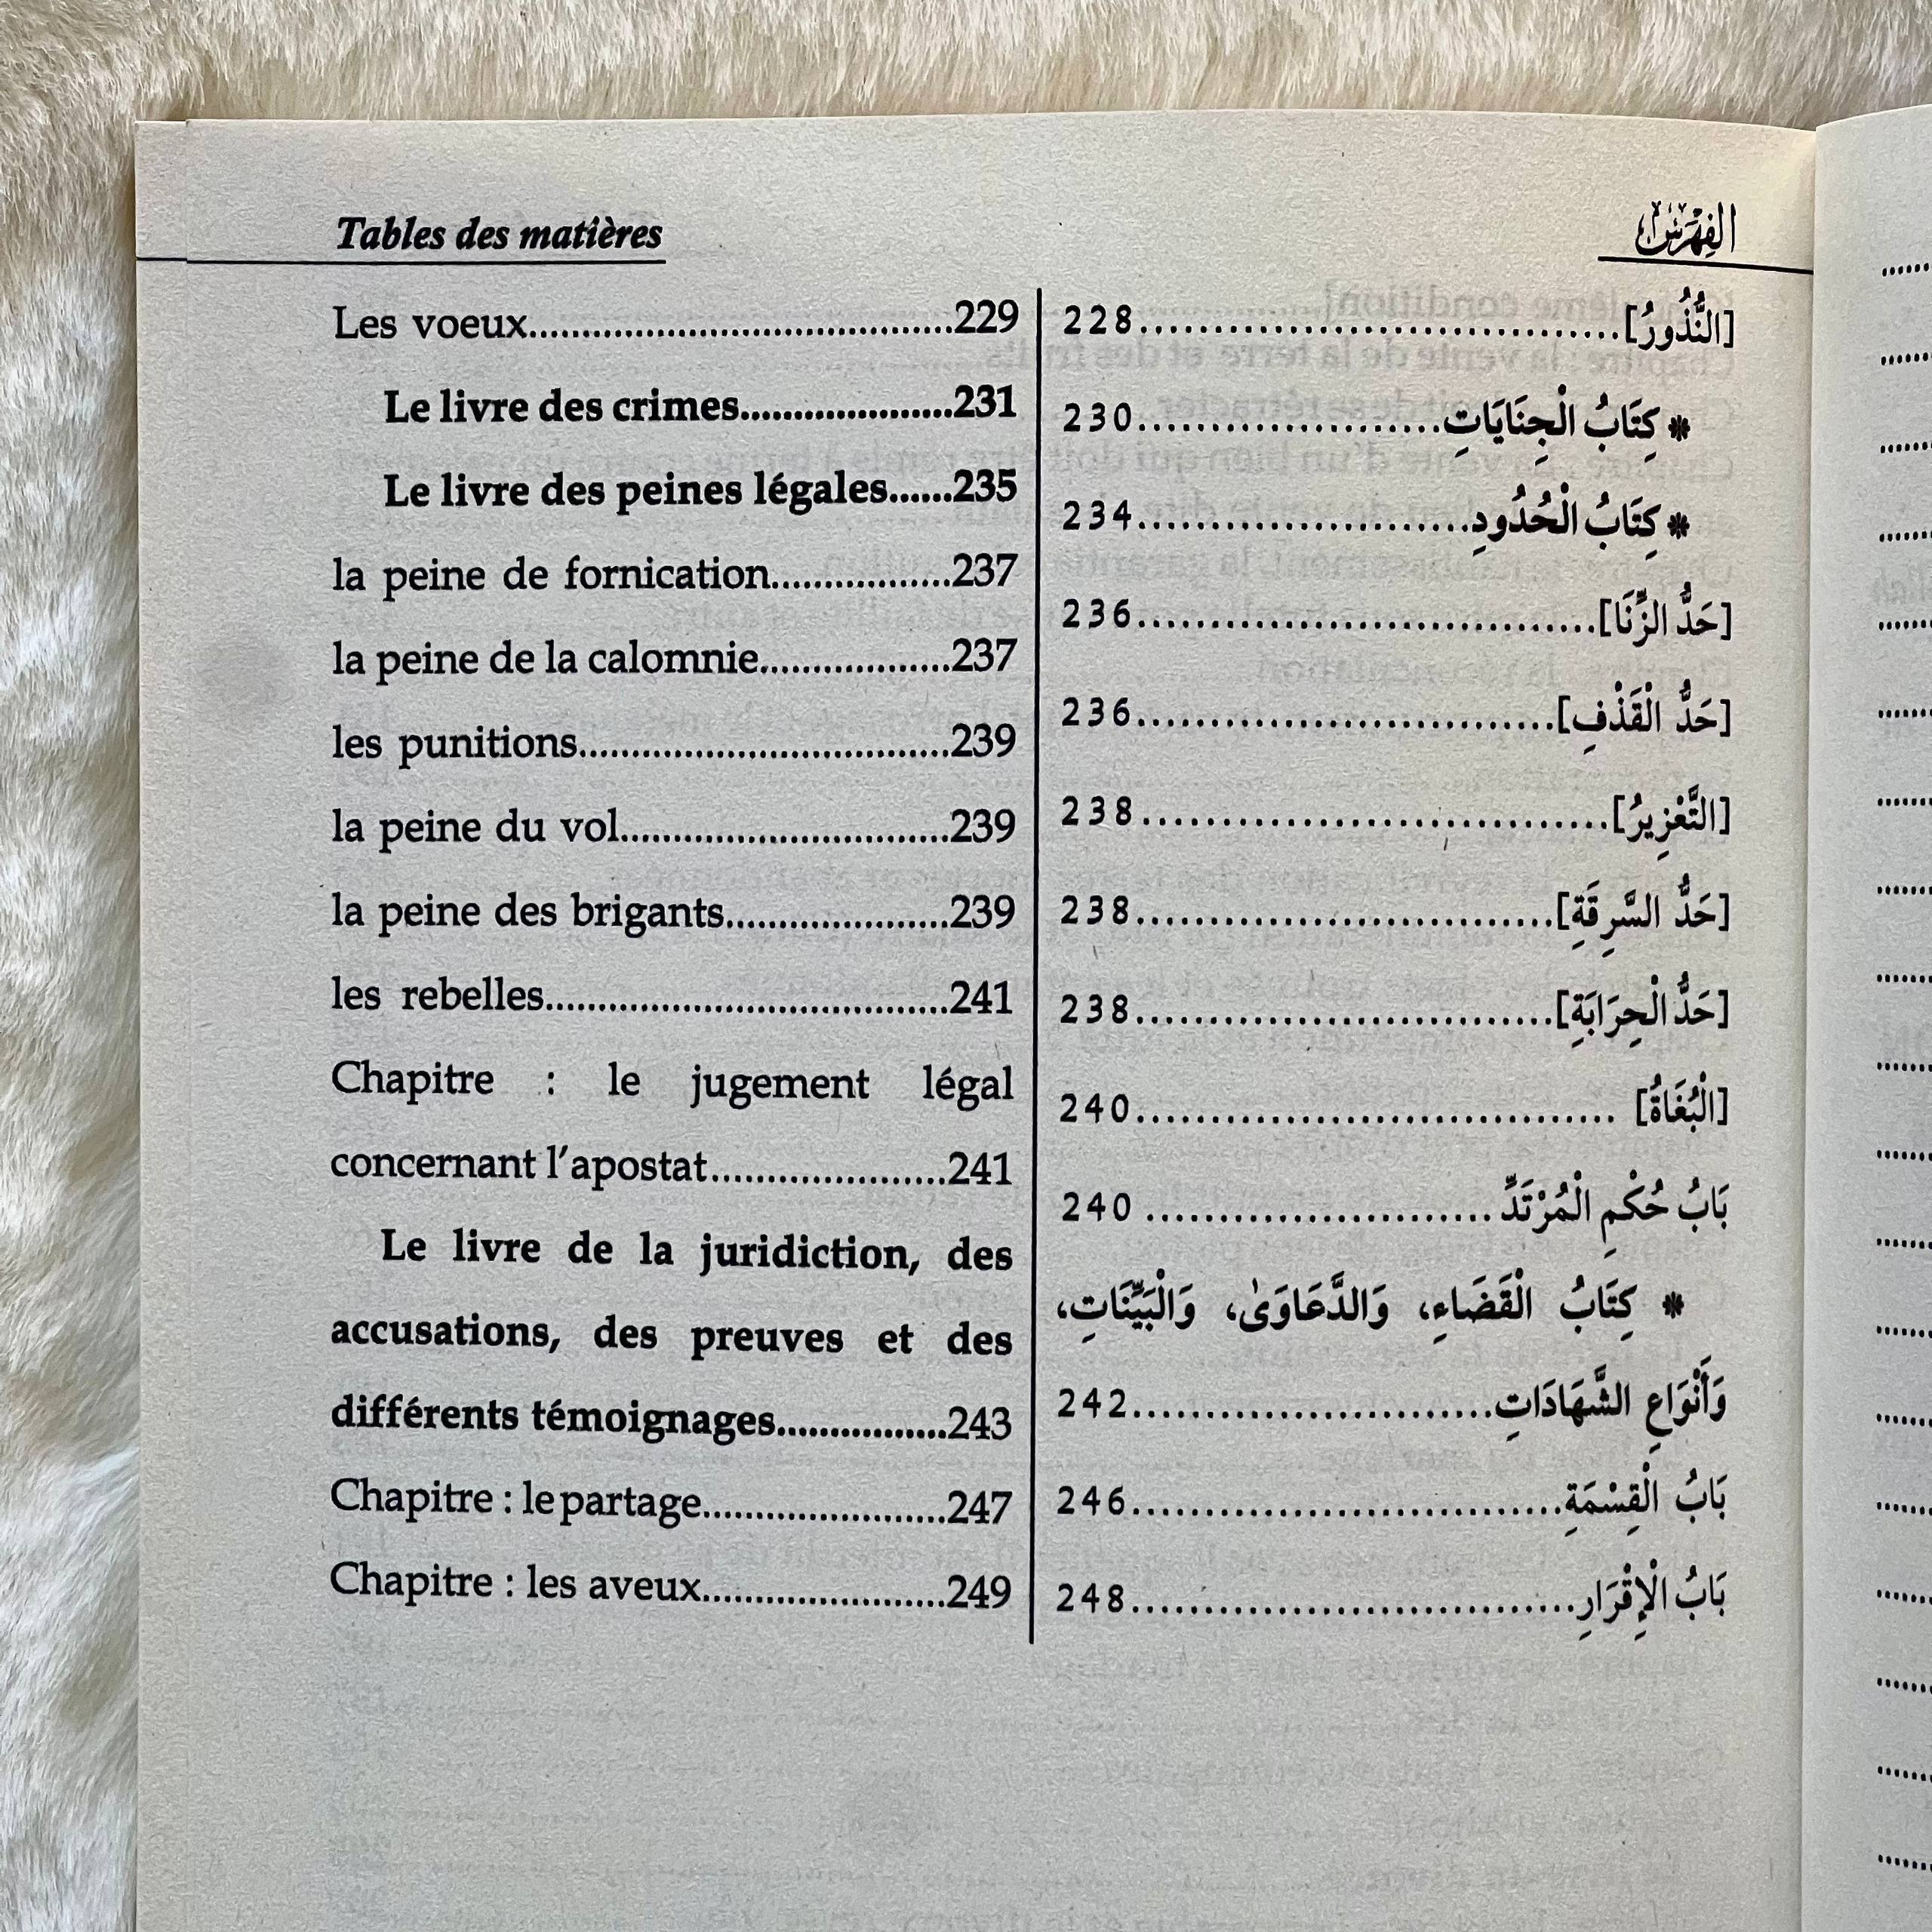 Tables des matières
الفِهْرِس
Les voeux........................................229
Le livre des crimes....................231
Le livre des peines légales......235
la peine de fornication.................237
la peine de la calomnie..................237
les punitions...................................239
la peine du vol...............................239
la peine des brigants.....................239
les rebelles......................................241
Chapitre : le jugement légal
concernant l'apostat.......................241
Le livre de la juridiction, des
accusations, des preuves et des
différents témoignages................243
Chapitre : le partage.......................247
Chapitre : les aveux.......................249
[النُّذُورُ]................................228
* كِتَابُ الْجِنَايَاتِ.....................230
* كِتَابُ الْحُدُودِ.......................234
[حَدُّ الزِّنَا]...............................236
[حَدُّ الْقَذْفِ]............................236
[التَّعْزِيرُ]...............................238
[حَدُّ السَّرِقَةِ]............................238
[حَدُّ الْحِرَابَةِ]............................238
[الْبُغَاةُ] ................................240
بَابُ حُكْمِ الْمُرْتَدِّ........................ 240
* كِتَابُ الْقَضَاءِ، وَالدَّعَاوَىٰ، وَالْبَيِّنَاتِ،
وَأَنْوَاعِ الشَّهَادَاتِ.........................242
بَابُ الْقِسْمَةِ.............................246
بَابُ الْإِقْرَارِ..............................248